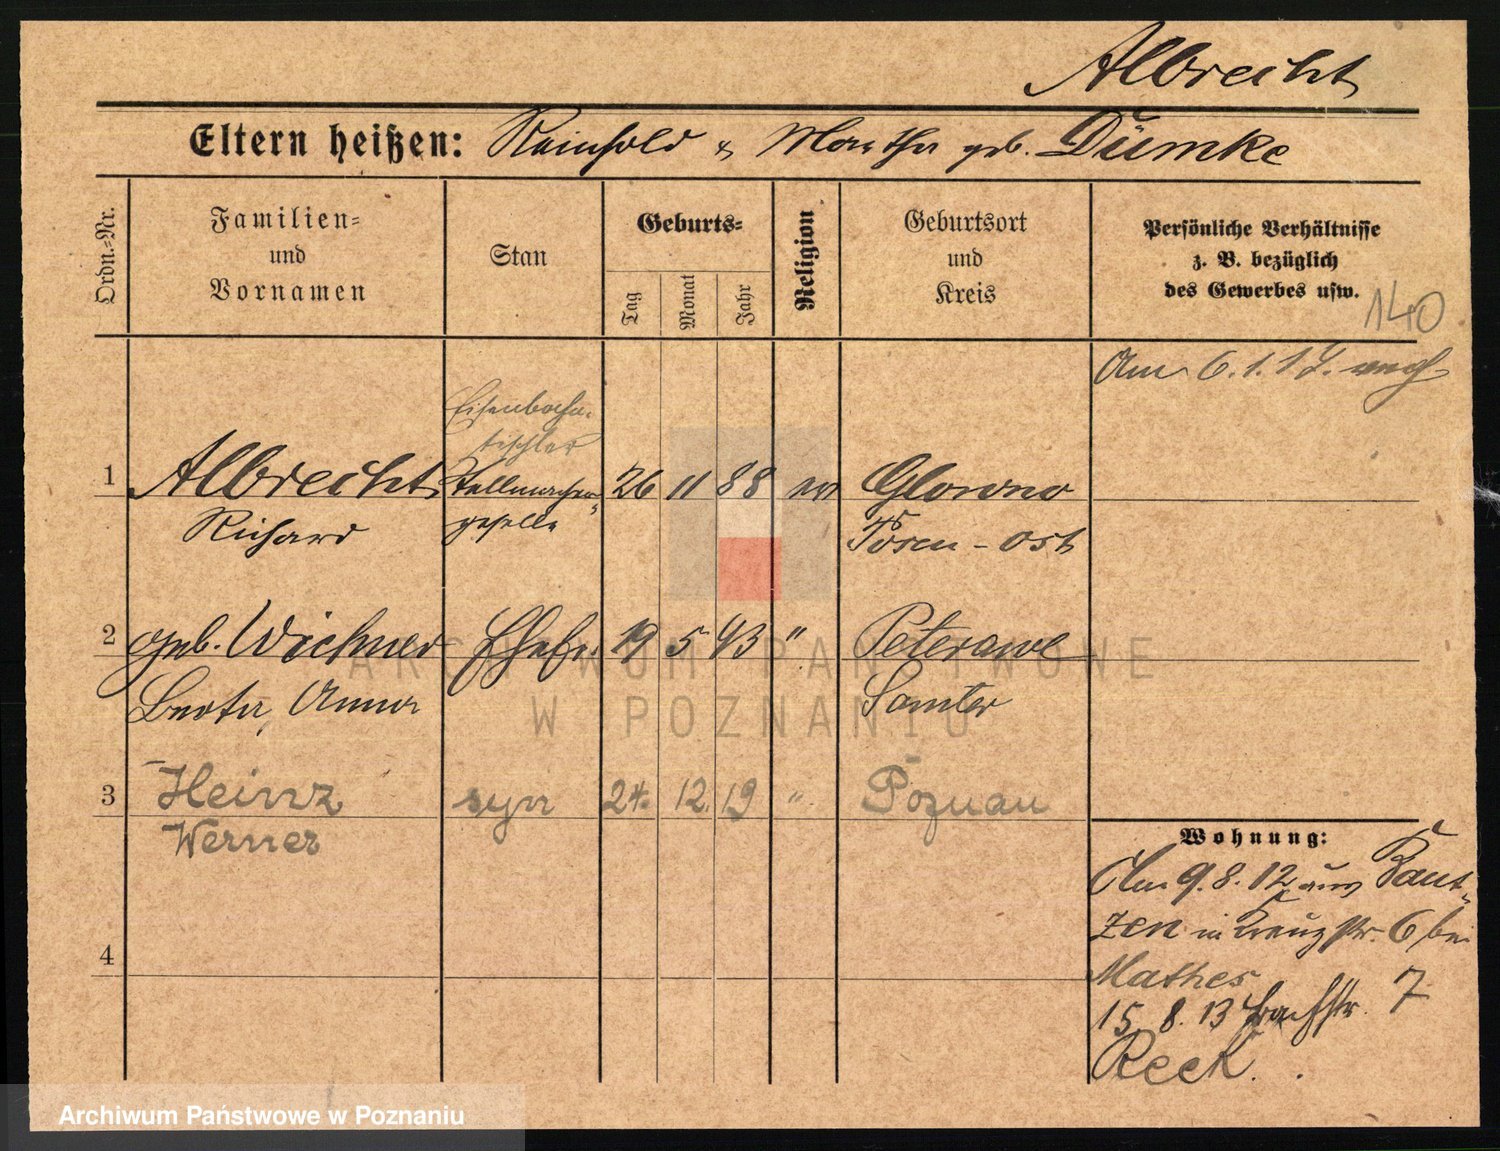 Albrecht
Eltern heißen: Reinhold & Martha geb. Dümke
Ordn.=Nr.
Familien=
und
Vornamen
Stan
Geburts=
Tag
Monat
Jahr
Religion
Geburtsort
und
Kreis
Persönliche Verhältnisse
z. B. bezüglich
des Gewerbes usw.
140
Am 6.1.
Eisenbahn-
tischler
1 Albrecht Stellmacher- 26 11 88 ev Glowno
Richard geselle Posen - Ost
2 geb. Wichner Ehefr. 19 5 93 " Peterawe
Berta, Anna Samter
3 Heinz syn 24. 12. 19 " Poznań
Werner
4
Wohnung:
Am 9.8.12 aus Baut-
zen in Kreuzstr. 6 bei
Mathes
15. 8. 13 Bachstr. 7
Reek.
ARCHIWUM PAŃSTWOWE
W POZNANIU
Archiwum Państwowe w Poznaniu